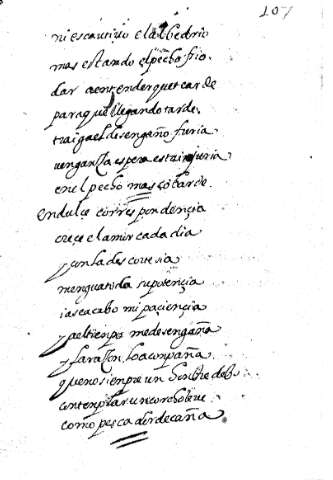 107
ni es cautivo el albedrio
mas estando el pecho frio.
dar a entender que tarde
para que llegando tarde,
traiga el desengaño furia
venganza espera esta injuria
en el pecho mas cobarde.
en dulçe correspondençia
creçe el amor cada dia
y con la descortesia
mengua toda su potençia
ia se acabo mi paçiençia
ya el tienpo me desengaña
y la razon lo aconpaña,
que no sienpre un
contenplar un
como pescador de caña.